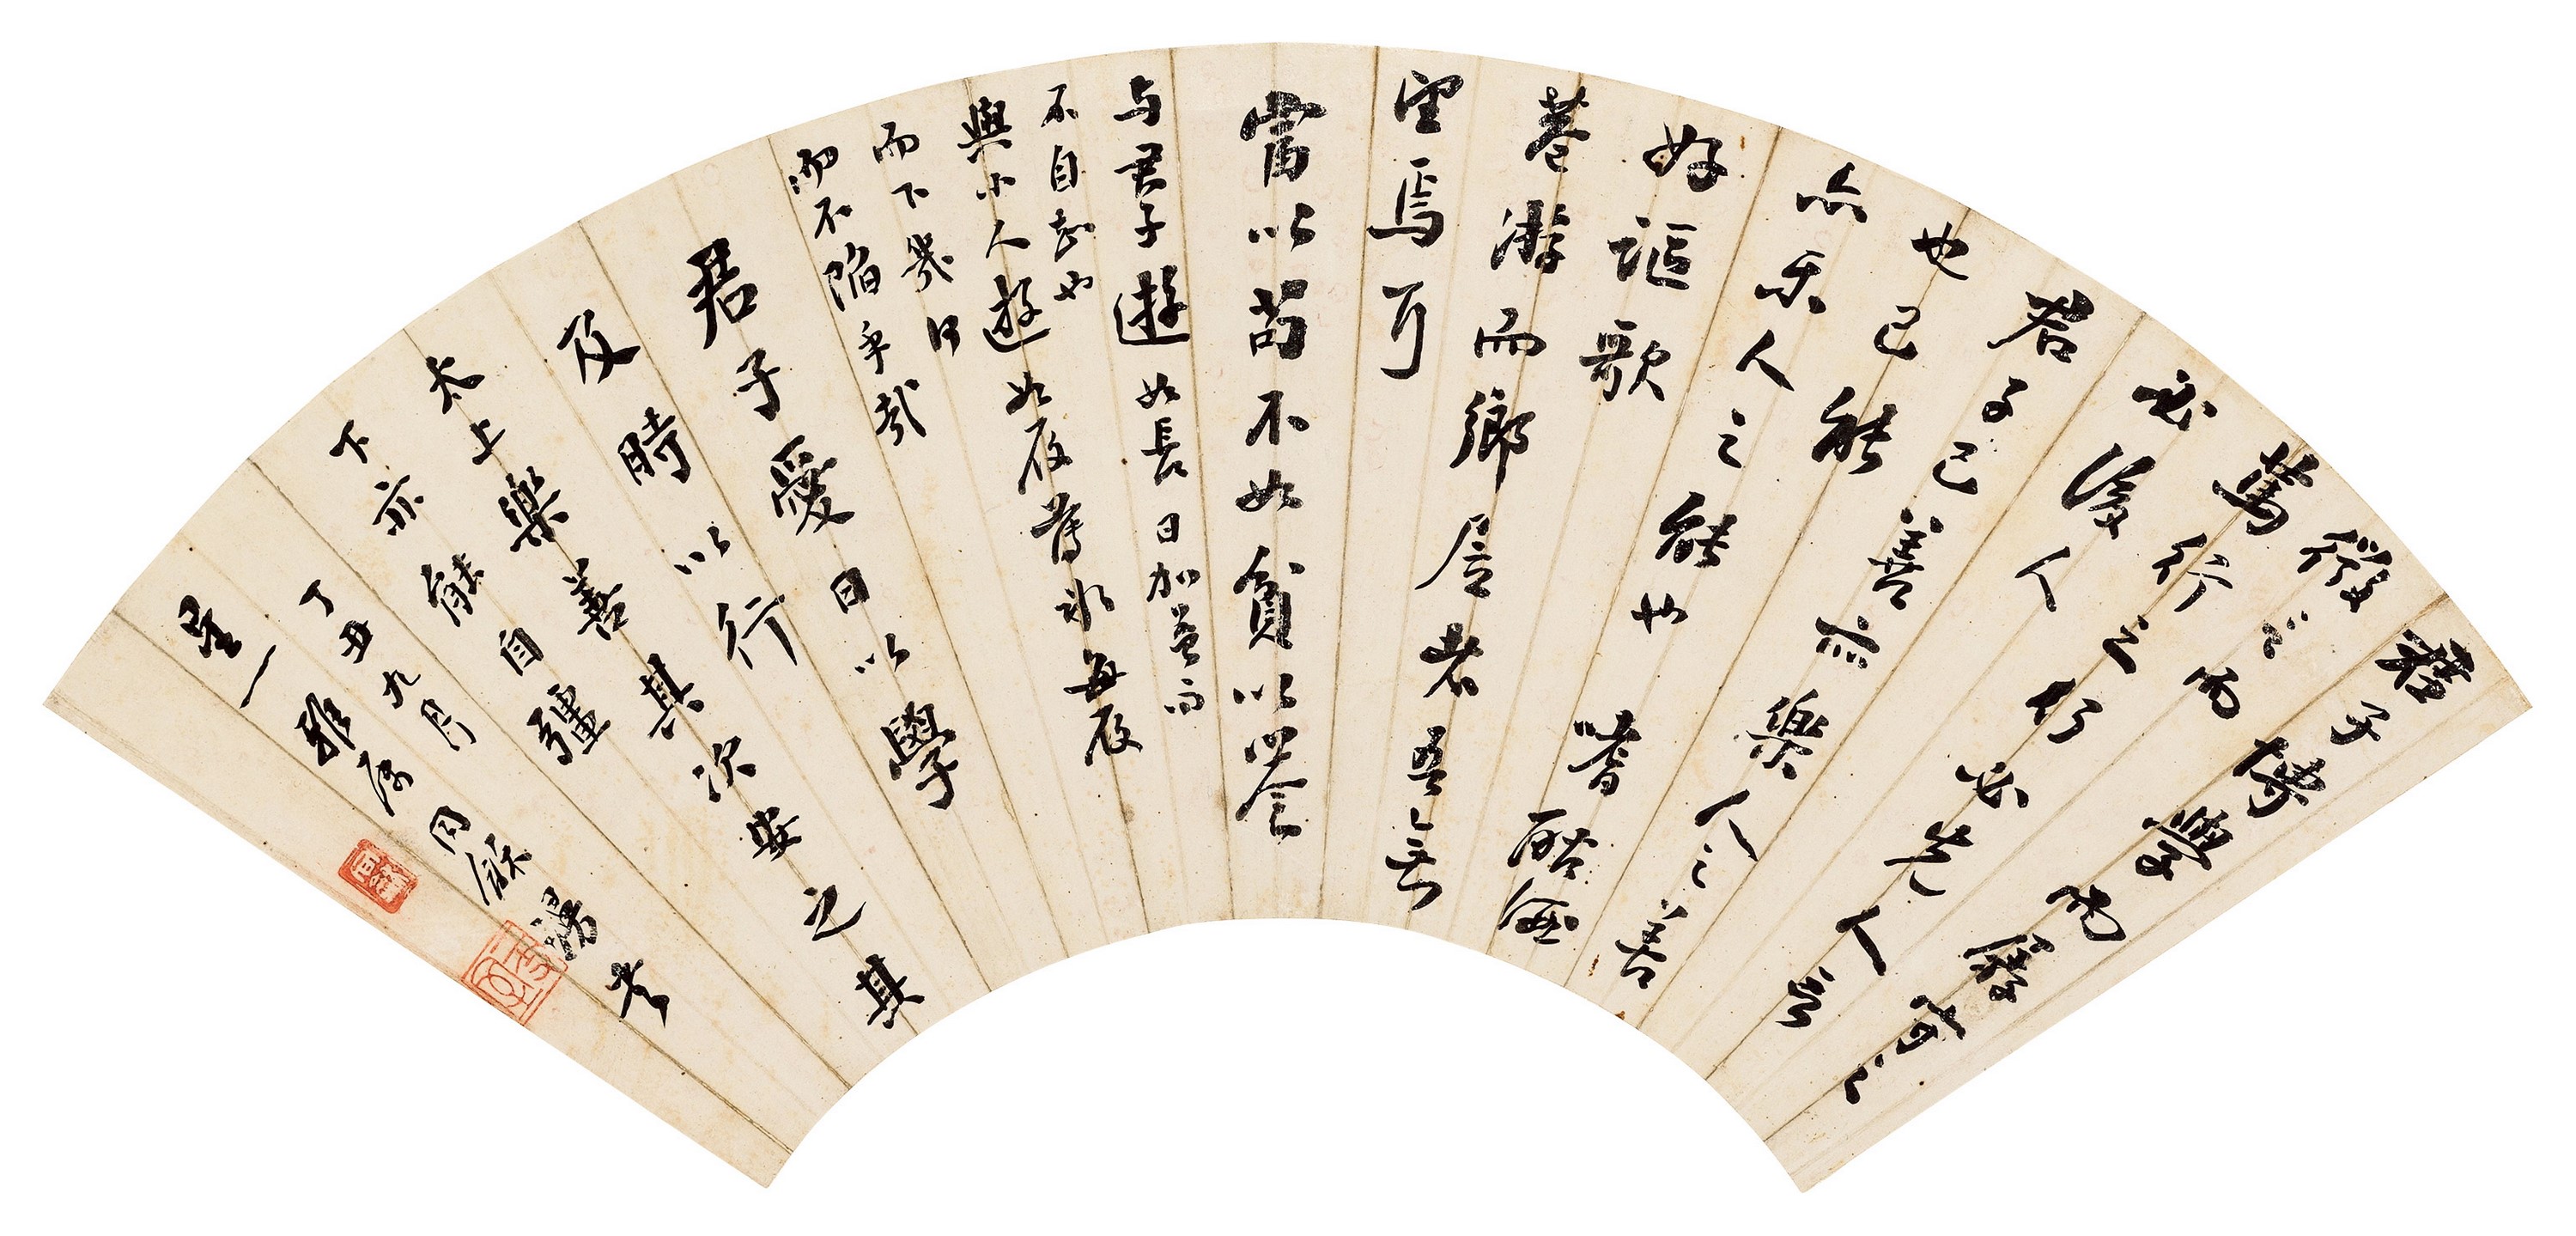 君子博學而孱守之
微言而
篤行之行必先人言
必後人
君子己善亦樂人之善
也己能
亦樂人之能也嗜酤酒
好謳歌
巷游而鄉居者吾無
望焉耳
富以苟不如貧以譽
与君子遊如長日加益而
不自知也
與小人遊如履薄冰每履
而下幾何
而不陷乎哉
君子愛日以學
及時以行
太上樂善其次安之其
下亦能自彊
丁丑九月
星一雅屬同龢